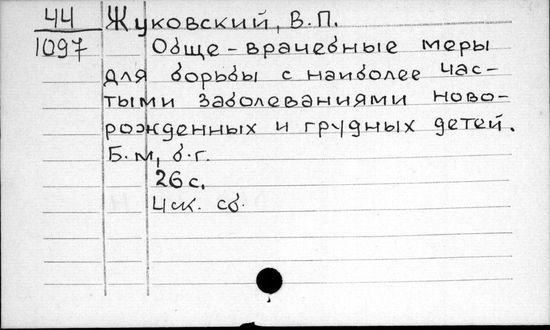 44 Жуковский, В.П.
1097 Обще-врачебные меры
для борьбы с наиболее час-
тыми заболеваниями ново-
рожденных и грудных детей.
Б.м, б.г.
26 с.
Цск. сб.